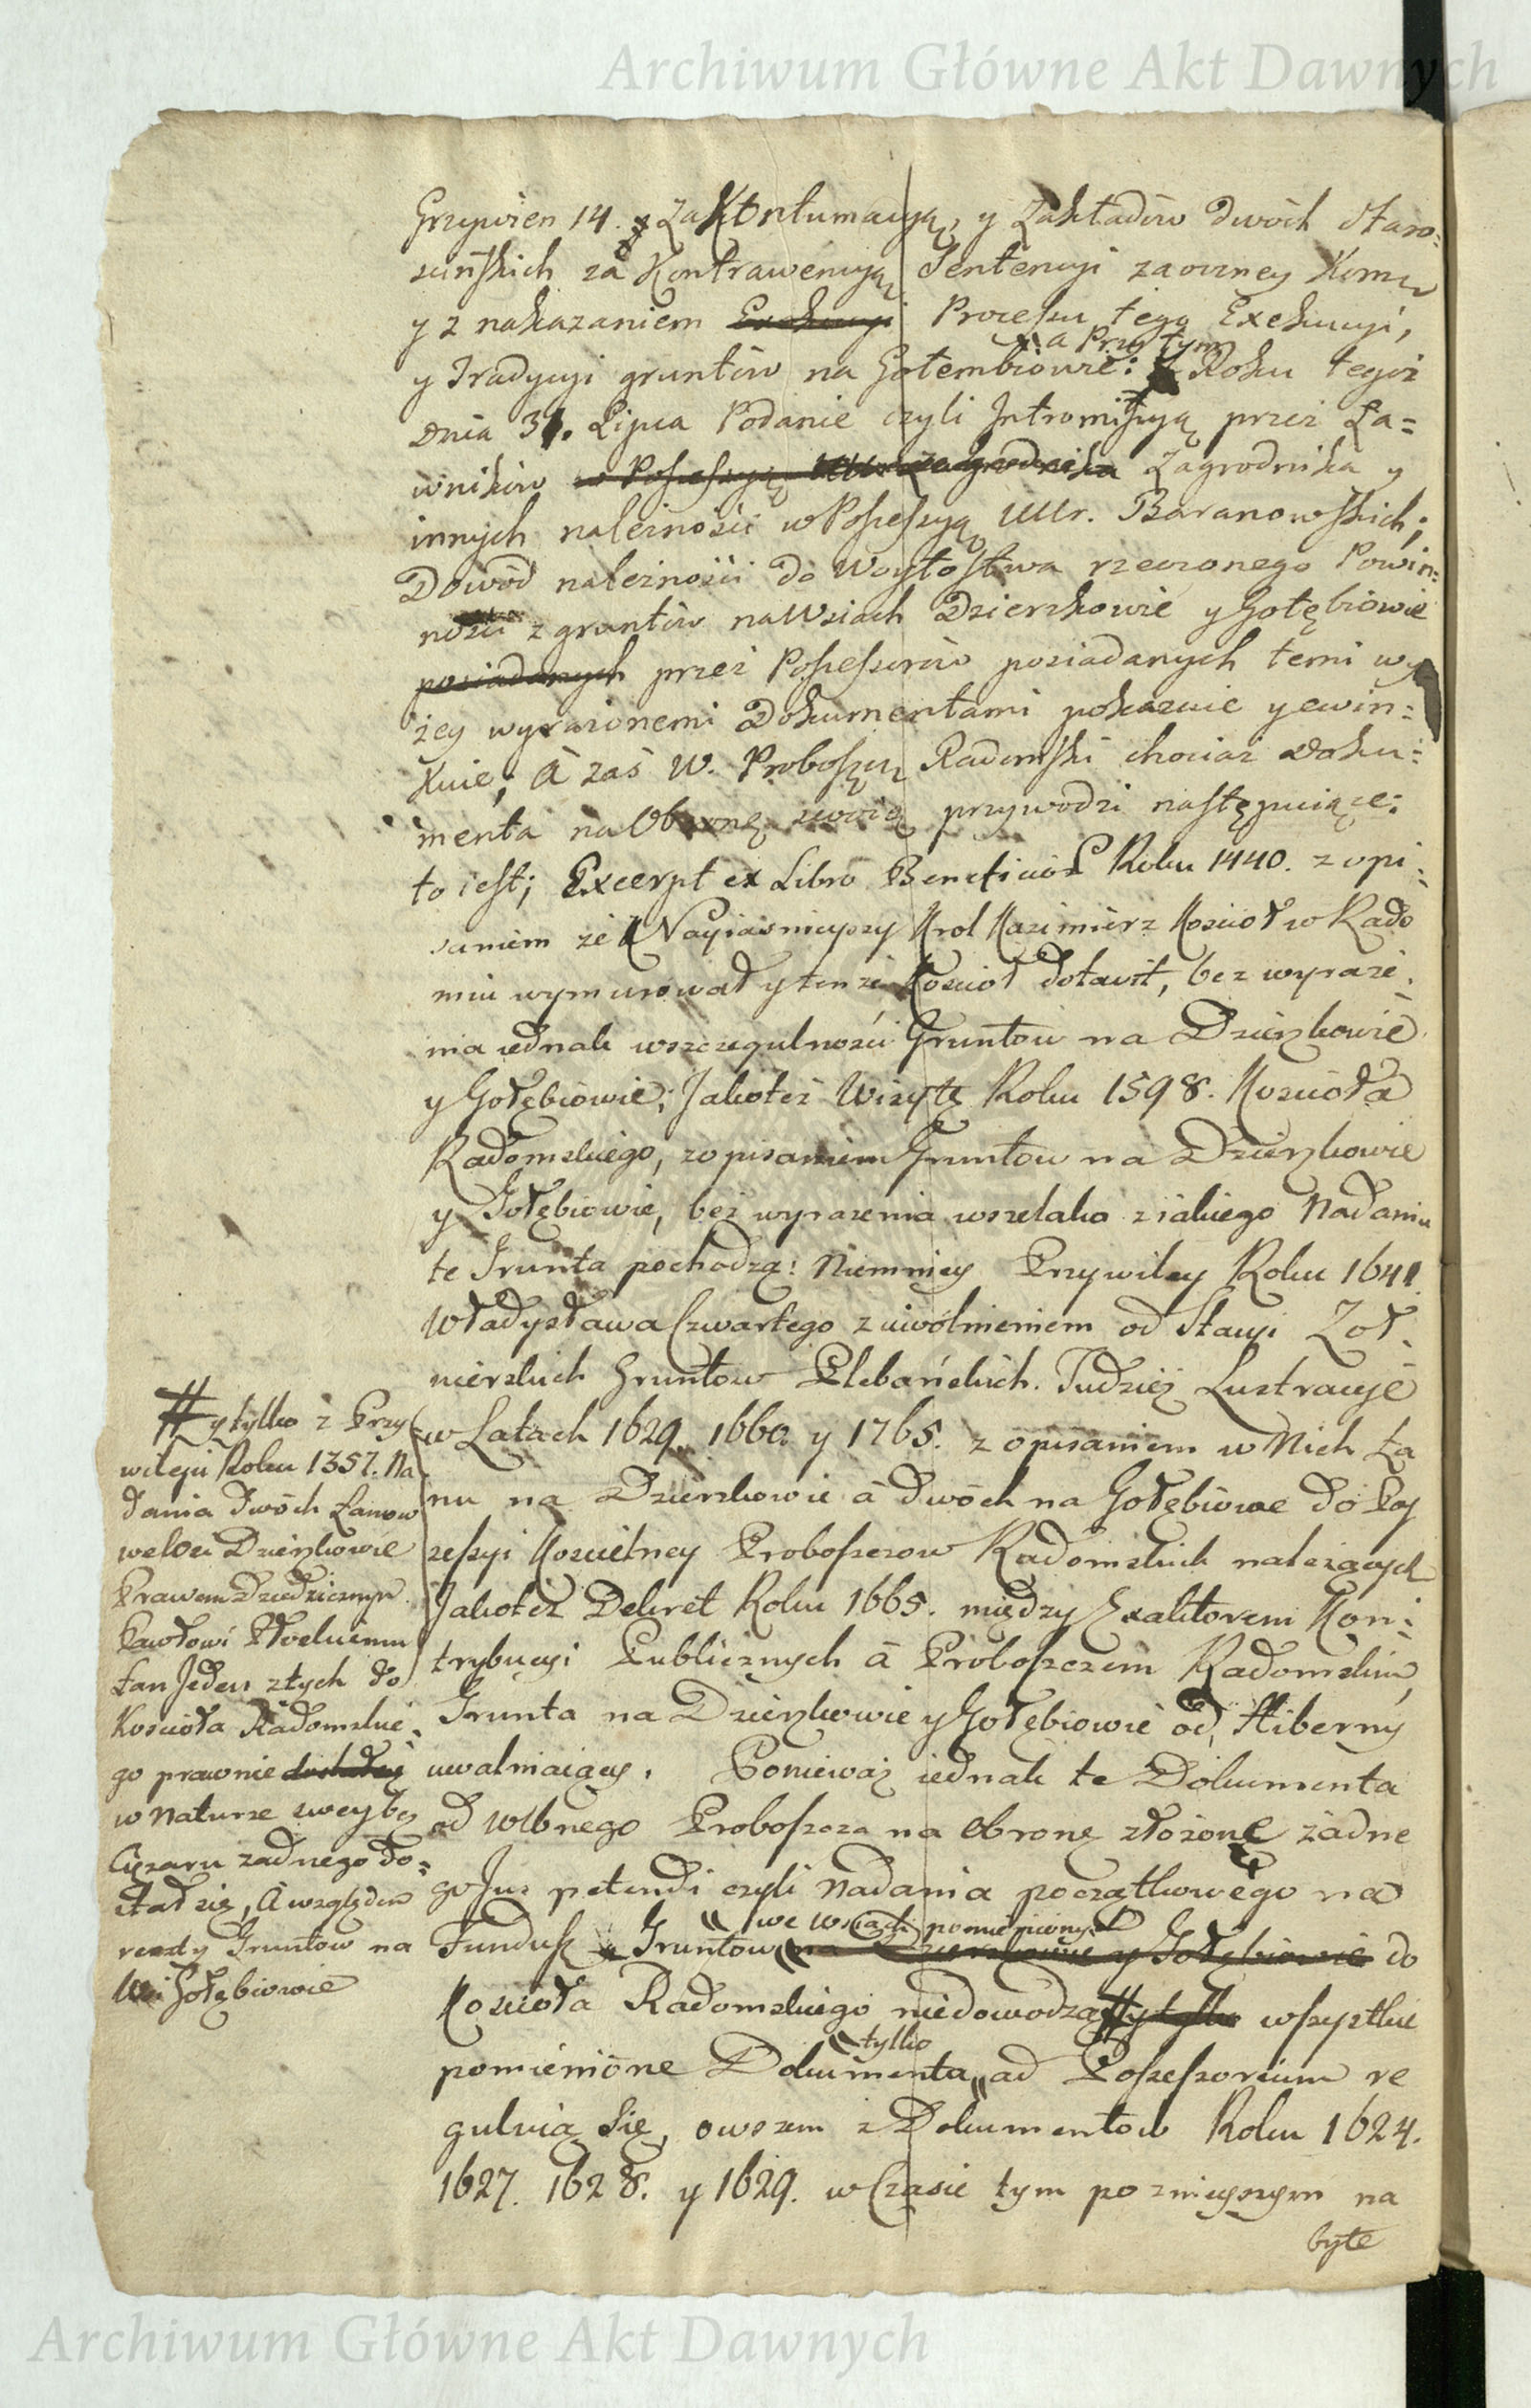 Archiwum Główne Akt Dawnych
Grzywien 14. za Kontumacyą, y Zakładów dwóch Staro=
scińskich za Kontrawencyą Sentencyi zaoczney Komu
y z nakazaniem Exekucyi Processu tego Exekucyi,
a Przy tym
y Tradycyi gruntów na Gołembiowie: Roku tegoż
Dnia 31. Lipca Podanie czyli Intromissyą przez Ła=
wników w Possessyą Zagrodnika Zagrodnika y
innych należności w Possessyą Ur. Baranowskich;
Dowód należności do Woytostwa rzeczonego Powin:
ności z gruntów na Wsiach Dzierzkowie y Gołębiowie
posiadanych przez Possessorów posiadanych temi wy
żey wyrażonemi Dokumentami pokazuie y ewin:
kuie; à zaś W. Proboszcz Radomski chociaż Doku:
menta na Obronę swoię przywodzi następuiące:
to iest; Excerpt ex Libro Beneficior Roku 1440. z opi:
saniem że Nayiasnieyszy Krol Kazimierz Koscioł w Rado
miu wymurował y tenże Koscioł dotawił, bez wyraże:
nia iednak wszczegulności Gruntow na Dzierzkowie
y Gołębiowie; Jakoteż Wizytę Roku 1598. Koscioła
Radomskiego, zopisaniem Gruntow na Dzierzkowie
y Gołębiowie, bez wyrazenia wszelako ziakiego Nadania
te Grunta pochodzą: Niemniey Przywiley Roku 1641.
Władysława Czwartego z uwolnieniem od Stacyi Zoł:
nierskich Gruntow Plebańskich. Tudzież Lustracye
w Latach 1629. 1660. y 1765. z opisaniem w Nich Ła
nu na Dzierzkowie à dwóch na Gołębiowie do Pos
sessyi Koscielney Proboszczow Radomskich należących
Jakoteż Dekret Roku 1665. między Exaktorem Kon:
trybucyi Publicznych à Proboszczem Radomskim,
Grunta na Dzierzkowie y Gołębiowie od Hiberny
uwalniaiący. Ponieważ iednak te Dokumenta
od Wlbnego Proboszcza na obronę złożone żadne
go Jus petendi czyli Nadania początkowego na
we Wsiach pomienionych
Fundusz Gruntow na Dzierzkowie y Gołębiowie do
Kosciola Radomskiego niedowodzą # y tylko wszystkie
tylko
pomienióne Dokumenta ad Possessorium re
guluią się, owszem z Dokumentow Roku 1624.
1627. 1628. y 1629. w Czasie tym poznieyszym na
byte
# y tylko z Przy
wileju Roku 1357. Na
dania Dwóch Łanow
we Wsi Dzierzkowie
Prawem Dziedzicznym
Pawłowi
Łan Jeden z tych do
Kosciola Radomskie:
go prawnie
w Naturze swey bez
Ciężaru zadnego do=
stał się, à względem
reszty Gruntow na
Wsi Gołębiowie
Archiwum Główne Akt Dawnych